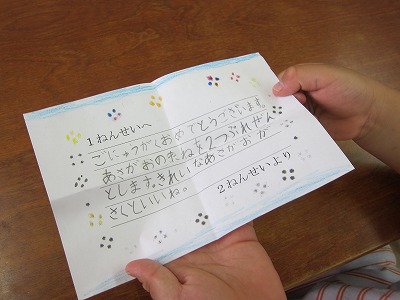 1ねんせいへ
ごにゅうがくおめでとうございます。
あさがおのたねを2つぶれぜん
とします。きれいなあさがおが
さくといいね。
2ねんせいより